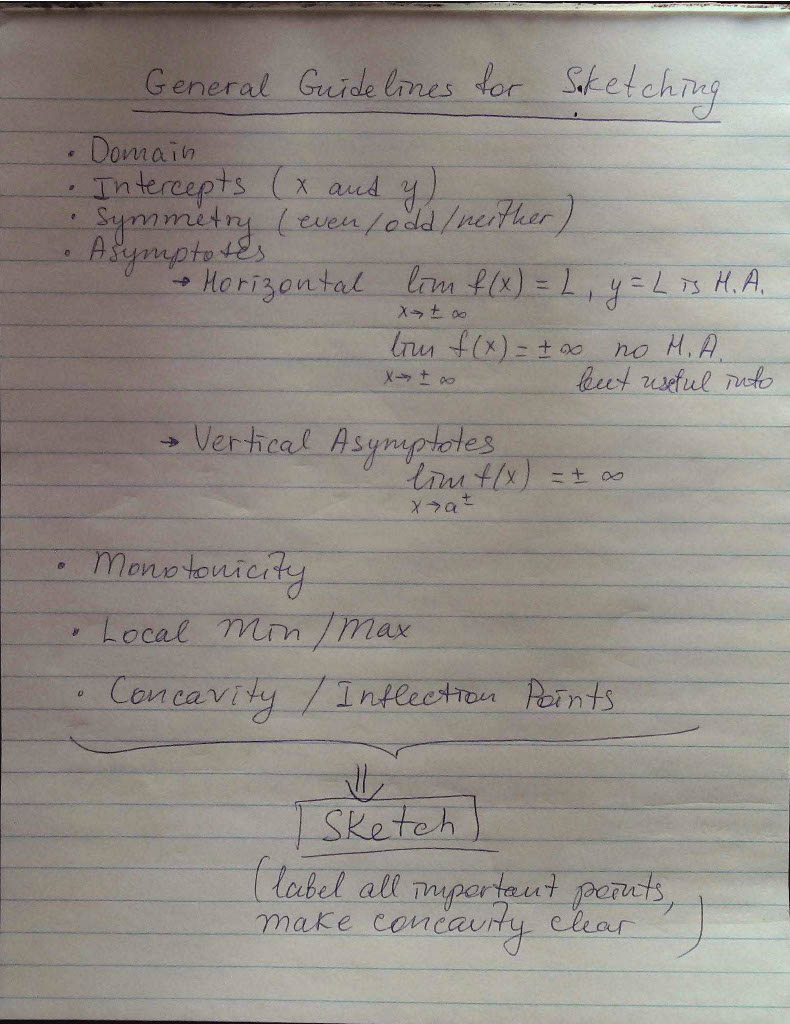 General Guidelines for Sketching
• Domain
• Intercepts (x and y)
• Symmetry (even/odd/neither)
• Asymptotes
→ Horizontal lim f(x) = L, y = L is H.A.
x→ ± ∞
lim f(x) = ± ∞ no H.A.
x→ ± ∞ but useful info
→ Vertical Asymptotes
lim f(x) = ± ∞
x→a±
• Monotonicity
• Local Min/Max
• Concavity / Inflection Points
⇓
Sketch
(label all important points,
make concavity clear)